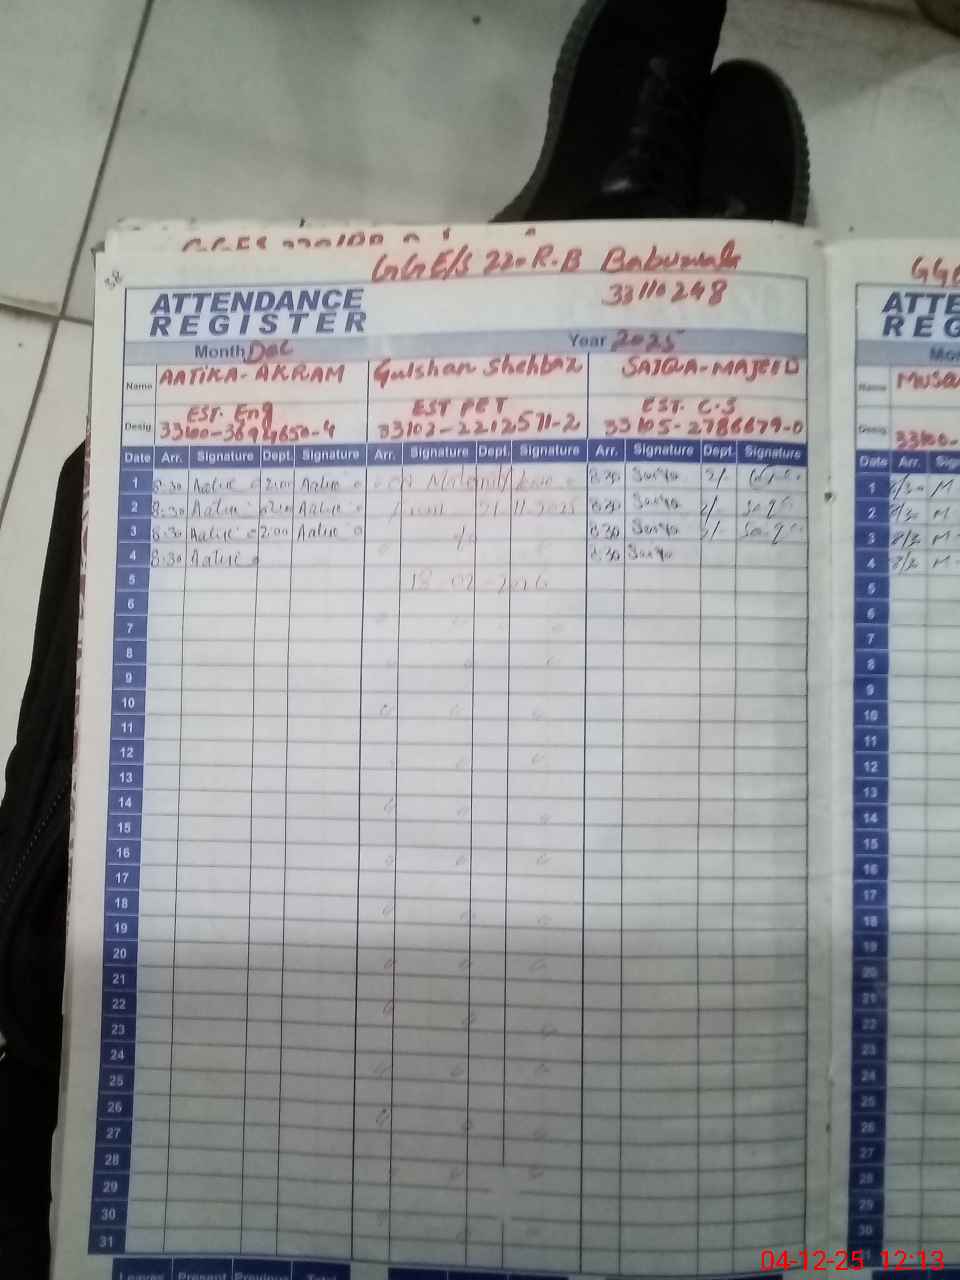 38
GGE/S 220 R.B Babuwala
33110248
ATTENDANCE
REGISTER
Month Dec Year 2025
Name AATIKA-AKRAM Gulshan Shehbaz SAIQA-MAJEED
Desig. EST. Eng EST PET EST. C.S
33100-3694650-4 33102-2212571-2 33105-2786679-0
Date Arr. Signature Dept. Signature Arr. Signature Dept. Signature Arr. Signature Dept. Signature
1 8:30 Aatika 2:00 Aatika On Maternity leave 8:30 Saiqa 2/
2 8:30 Aatika 2:00 Aatika from 21 11-2025 8:30 Saiqa 2/ Saiqa
3 8:30 Aatika 2:00 Aatika 8:30 Saiqa 2/ Saiqa
4 8:30 Aatika 8:30 Saiqa
5 18-02-2026
6
7
8
9
10
11
12
13
14
15
16
17
18
19
20
21
22
23
24
25
26
27
28
29
30
31
Leaves Present Previous Total
GGE
ATTE
REG
Mo
Name
Desig.
33100-
Date Arr. Sig
1 8/30 M
2 8/30 M
3 8/30 M
4 8/30 M
5
6
7
8
9
10
11
12
13
14
15
16
17
18
19
20
21
22
23
24
25
26
27
28
29
30
31
04-12-25 12:13